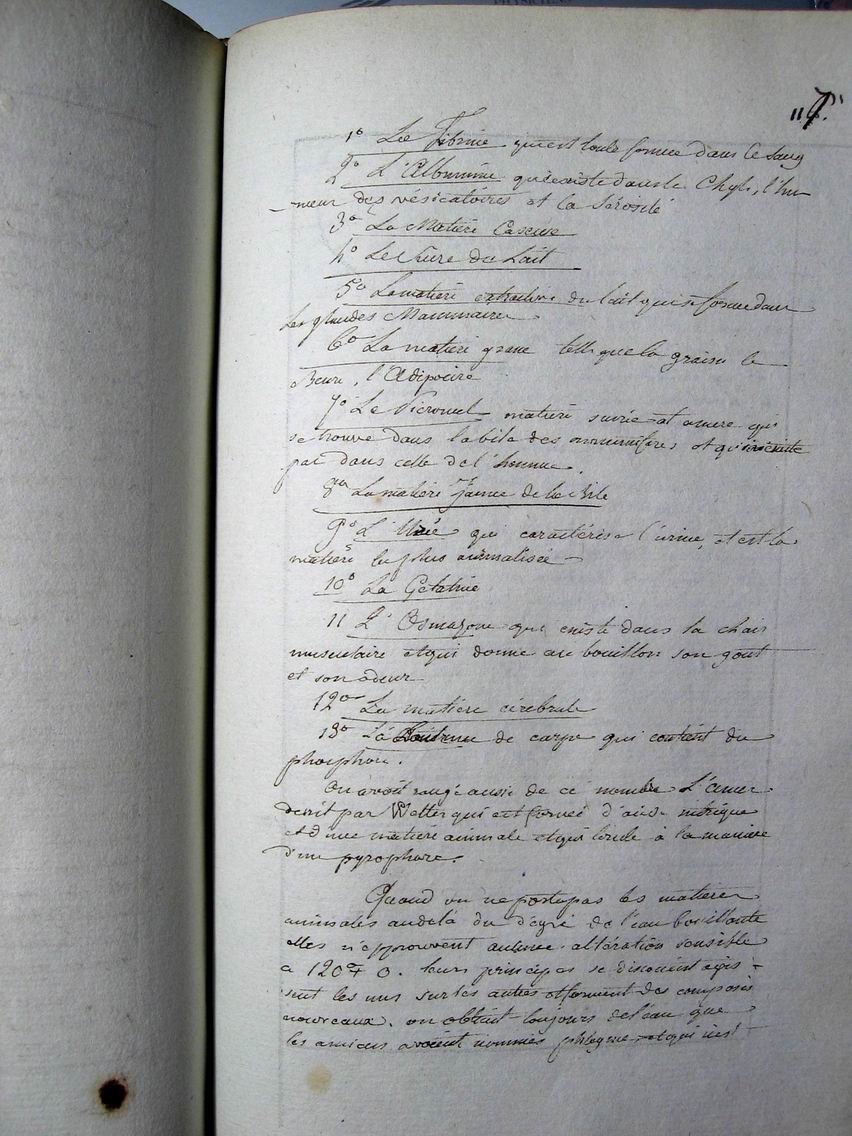 "7."
1° La Fibrine qui est toute formee dans le sang
2° L'Albumine qui existe dans le Chyle, l'hu-
-meur des vésicatoires et la sérosité
3° La Matiere Caseuse
4° Le Sucre du Lait
5° La matiere extractive du lait qui se forme dans
les glandes Mammaires
6° La matiere grasse telle que la graisse le
Beure, l'Adipocire
7° Le Picromel matiere sucrée et amere qui
se trouve dans la bile des mammiferes et qui n'existe
pas dans celle de l'homme.
8° La matiere Jaune de la Bile
9° L'Urée qui caracterise l'urine, et est la
matiere la plus animalisée
10° La Gelatine
11 L'Osmazone qui existe dans la chair
musculaire et qui donne au bouillon son gout
et son odeur
12° La matiere cérébrale
13° La de carpe qui contient du
phosphore.
On avoit rangé aussi de ce nombre L'amer
decrit par Welter qui est formée d'acide nitrique
et d'une matiere animale et qui brule à la maniere
d'un pyrophore.
Quand on ne porte pas les matieres
animales audelà du degré de l'eau bouillante
elles n'epprouvent aucune altération sensible
a 120 + 0. leurs principes se disocient agis-
sent les uns sur les autres et forment des composés
nouveaux. on obtient toujours de l'eau que
les anciens avoient nommés phlegme et qui n'est